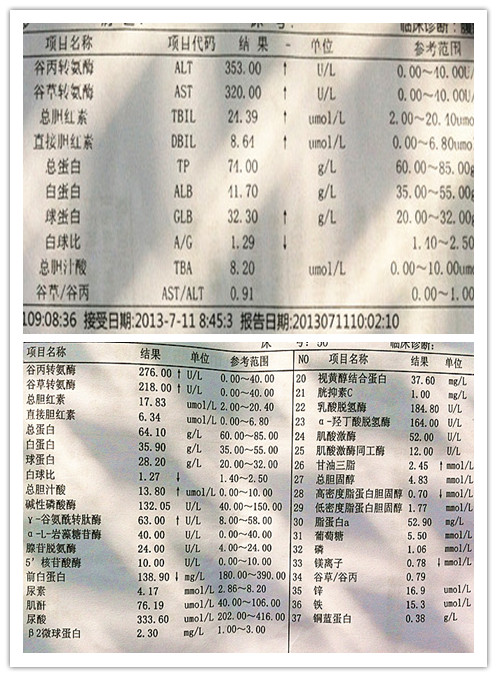 临床诊断:
项目名称 项目代码 结果 - 单位 参考范围
谷丙转氨酶 ALT 353.00 ↑ U/L 0.00~40.00U/
谷草转氨酶 AST 320.00 ↑ U/L 0.00~40.00U/
总胆红素 TBIL 24.39 ↑ umol/L 2.00~20.40umo
直接胆红素 DBIL 8.64 ↑ umol/L 0.00~6.80umo
总蛋白 TP 74.00 g/L 60.00~85.00g
白蛋白 ALB 41.70 g/L 35.00~55.00g
球蛋白 GLB 32.30 ↑ g/L 20.00~32.00
白球比 A/G 1.29 ↓ 1.40~2.50
总胆汁酸 TBA 8.20 umol/L 0.00~10.00um
谷草/谷丙 AST/ALT 0.91 0.00~1.00
109:08:36 接受日期:2013-7-11 8:45:3 报告日期:2013071110:02:10
床号:50 临床诊断:
项目名称 结果 单位 参考范围
谷丙转氨酶 276.00 ↑ U/L 0.00~40.00
谷草转氨酶 218.00 ↑ U/L 0.00~40.00
总胆红素 17.83 umol/L 2.00~20.40
直接胆红素 6.34 umol/L 0.00~6.80
总蛋白 64.10 g/L 60.00~85.00
白蛋白 35.90 g/L 35.00~55.00
球蛋白 28.20 g/L 20.00~32.00
白球比 1.27 ↓ 1.40~2.50
总胆汁酸 13.80 ↑ umol/L 0.00~10.00
碱性磷酸酶 132.05 U/L 40.00~150.00
γ-谷氨酰转肽酶 63.00 ↑ U/L 8.00~58.00
α-L-岩藻糖苷酶 40.00 U/L 0.00~40.00
腺苷脱氨酶 24.00 U/L 4.00~24.00
5'核苷酸酶 10.00 U/L 0.00~10.00
前白蛋白 138.90 ↓ mg/L 180.00~390.00
尿素 4.17 mmol/L 2.86~8.20
肌酐 76.19 umol/L 40.00~106.00
尿酸 333.60 umol/L 202.00~416.00
β2微球蛋白 2.30 mg/L 1.00~3.00
NO 项目名称 结果 单位
20 视黄醇结合蛋白 37.60 mg/L
21 胱抑素C 1.00 mg/L
22 乳酸脱氢酶 184.80 U/L
23 α-羟丁酸脱氢酶 164.00 U/L
24 肌酸激酶 52.00 U/L
25 肌酸激酶同工酶 12.00 U/L
26 甘油三脂 2.45 ↑ mmol/L
27 总胆固醇 4.83 mmol/L
28 高密度脂蛋白胆固醇 0.70 ↓ mmol/L
29 低密度脂蛋白胆固醇 1.77 mmol/L
30 脂蛋白a 52.90 mg/L
31 葡萄糖 5.50 mmol/L
32 磷 1.06 mmol/L
33 镁离子 0.78 ↓ mmol/L
34 谷草/谷丙 0.79
35 锌 16.9 umol/L
36 铁 15.3 umol/L
37 铜蓝蛋白 0.38 g/L